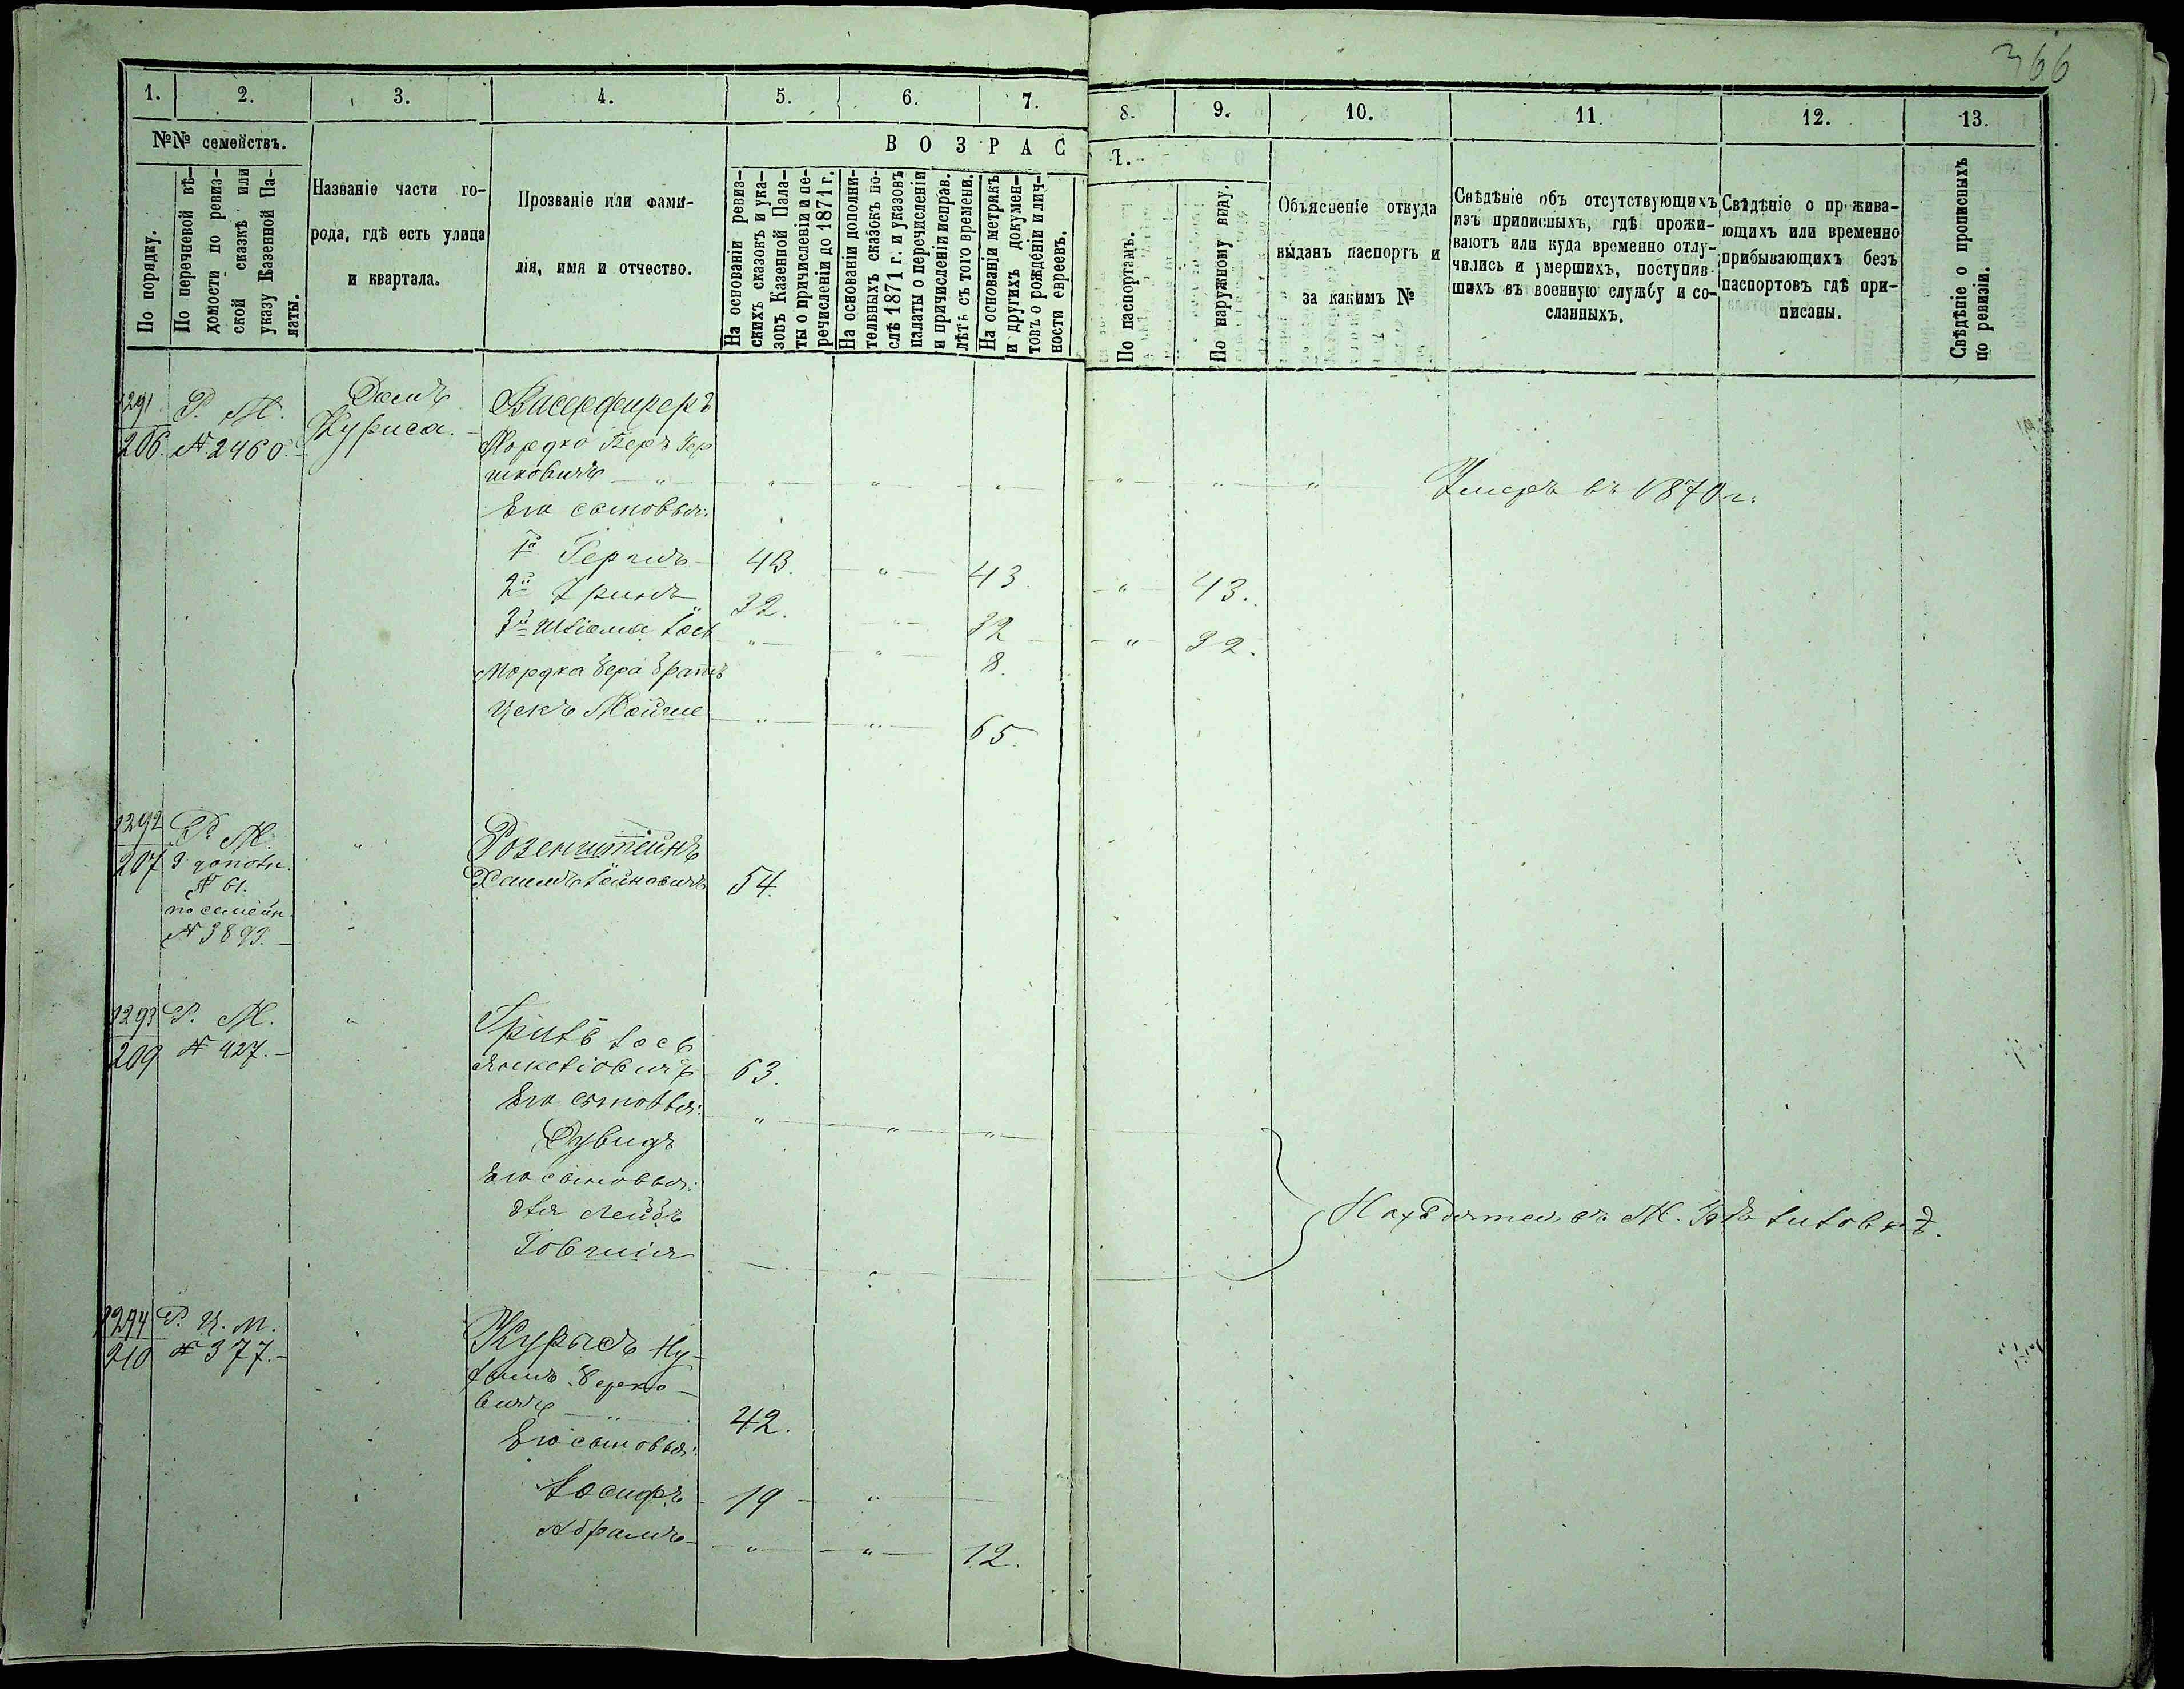 366
1. 2. 3. 4. 5. 6. 7. 8. 9. 10. 11. 12. 13.
№№ семействъ.
По порядку.
По перечневой вѣ-
домости по ревиз-
ской сказкѣ или
указу Казенной Па-
латы.
Названіе части го-
рода, гдѣ есть улица
и квартала.
Прозваніе или фами-
лія, имя и отчество.
ВОЗРАС
Т.
На основаніи ревиз-
скихъ сказокъ и ука-
зовъ Казенной Пала-
ты о причисленіи и пе-
речисленіи до 1871 г.
На основаніи дополни-
тельныхъ сказокъ по-
слѣ 1871 г. и указовъ
палаты о перечисленіи
и причисленіи исправ.
лѣтъ съ того времени.
На основаніи метрикъ
и другихъ докумен-
товъ о рожденіи и лич-
ности евреевъ.
По паспортамъ.
По наружному виду.
Объясненіе откуда
выданъ паспортъ и
за какимъ №
Свѣдѣніе объ отсутствующихъ
изъ приписныхъ, гдѣ прожи-
ваютъ или куда временно отлу-
чились и умершихъ, поступив-
шихъ въ военную службу и со-
сланныхъ.
Свѣдѣніе о прожива-
ющихъ или временно
прибывающихъ безъ
паспортовъ гдѣ при-
писаны.
Свѣдѣніе о прописныхъ
по ревизіи.
1291. Р. М. Домъ
206. № 2460. Куриса.
Мордко Беръ Гер
шковичъ " " " " " " " Умеръ въ 1870 г.
Его сыновья:
1й Гершъ 43. " 43. " 43.
2й 32. " 32 " 32.
3й " " 8.
Мордка Бера братъ
Ицекъ Мойше " " 65.
1292 Р. М. " Розенштейнъ
207 3 дополн. Хаимъ 54.
№ 61.
по семейн.
№ 3893.
1293 Р. М. "
209 № 427.
63.
Его сыновья: " " "
Дувидъ
Его сыновья:
Эля Лейбъ
Іовшія
Находятся въ М.
1294 Р. И. М. Курысъ Ну-
210 № 377. Берко-
вичъ 42.
Его сыновья:
Іосифъ 19 "
Абрамъ " " 12.